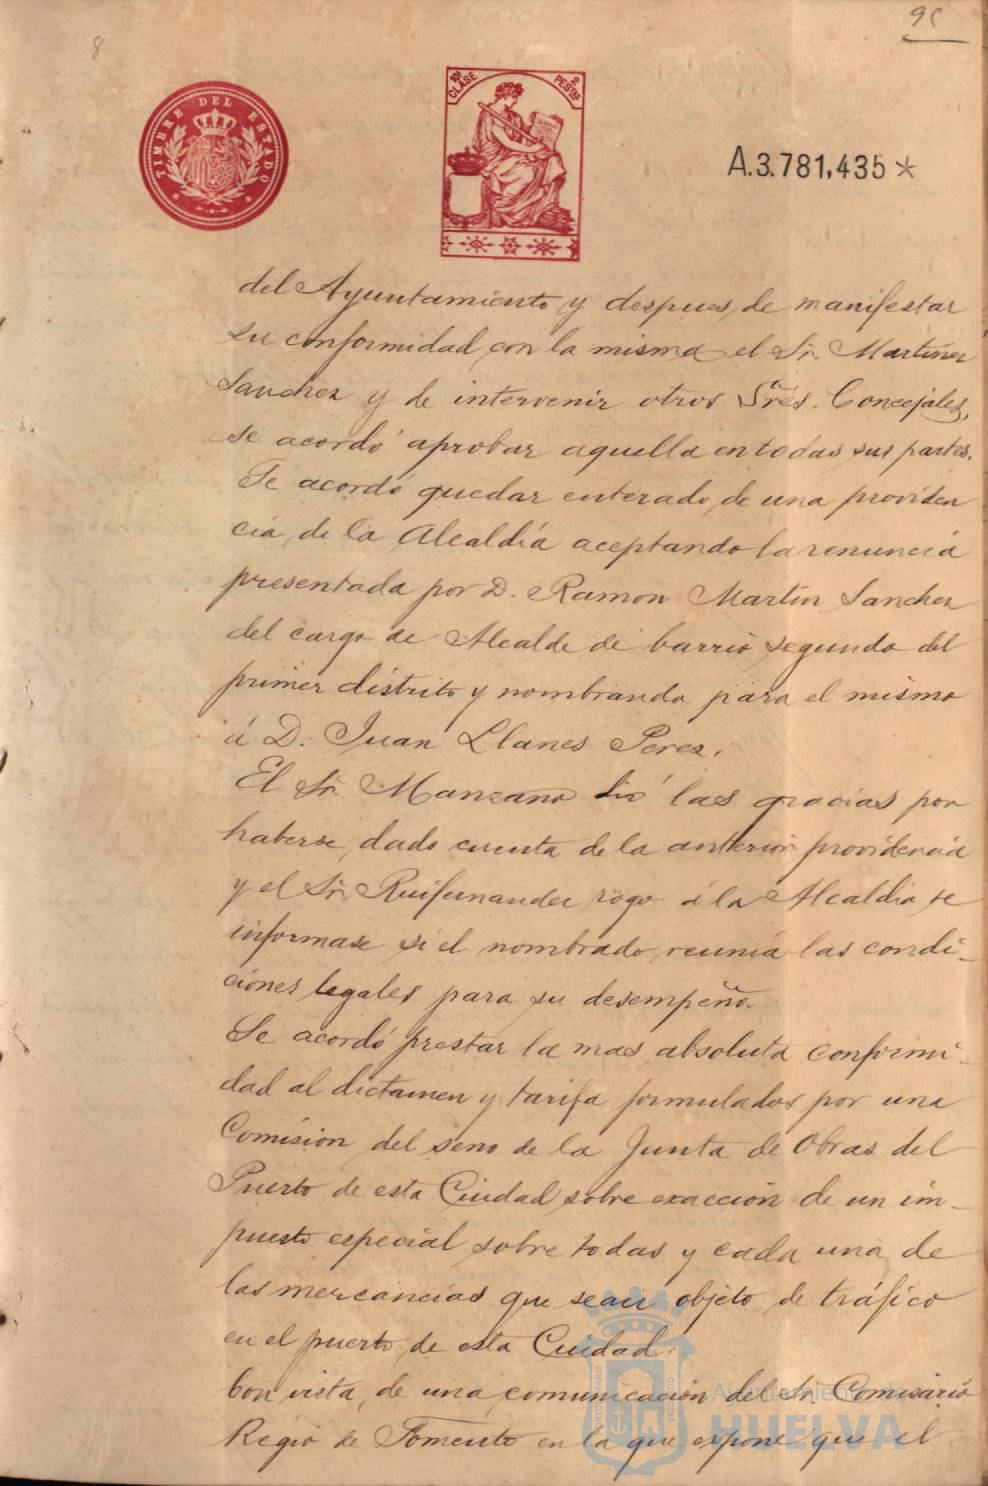 95
8
TIMBRE DEL ESTADO
10ª CLASE 2 PESTAS
A.3.781,435*
del Ayuntamiento y despues, de manifestar
su conformidad con la misma el Sr. Martinez
Sanchez y de intervenir otros Sres. Concejales,
se acordó aprobar aquella en todas sus partes.
Se acordó quedar enterado, de una providen
cia, de la Alcaldía aceptando la renuncia
presentada por D. Ramon Martin Sanchez
del cargo de Alcalde de barrio segundo del
primer distrito y nombrando para el mismo
á D. Juan Llanes Perez.
El Sr. Manzano dió las gracias por
haberse, dado cuenta de la anterior providencia
y el Sr. Ruifernandez rogo á la Alcaldia, se
informase si el nombrado, reunia las condi-
ciones legales para su desempeño.
Se acordó prestar la mas absoluta conformi-
dad al dictamen y tarifa formulados por una
Comision del seno de la Junta de Obras del
Puerto de esta Ciudad sobre exacción de un im-
puesto especial sobre todas y cada una de
las mercancias que sean objeto de tráfico
en el puerto, de esta Ciudad.
Con vista, de una comunicación del Sr. Comisario
Regio de Fomento en la que expone que el
Ayuntamiento de
HUELVA